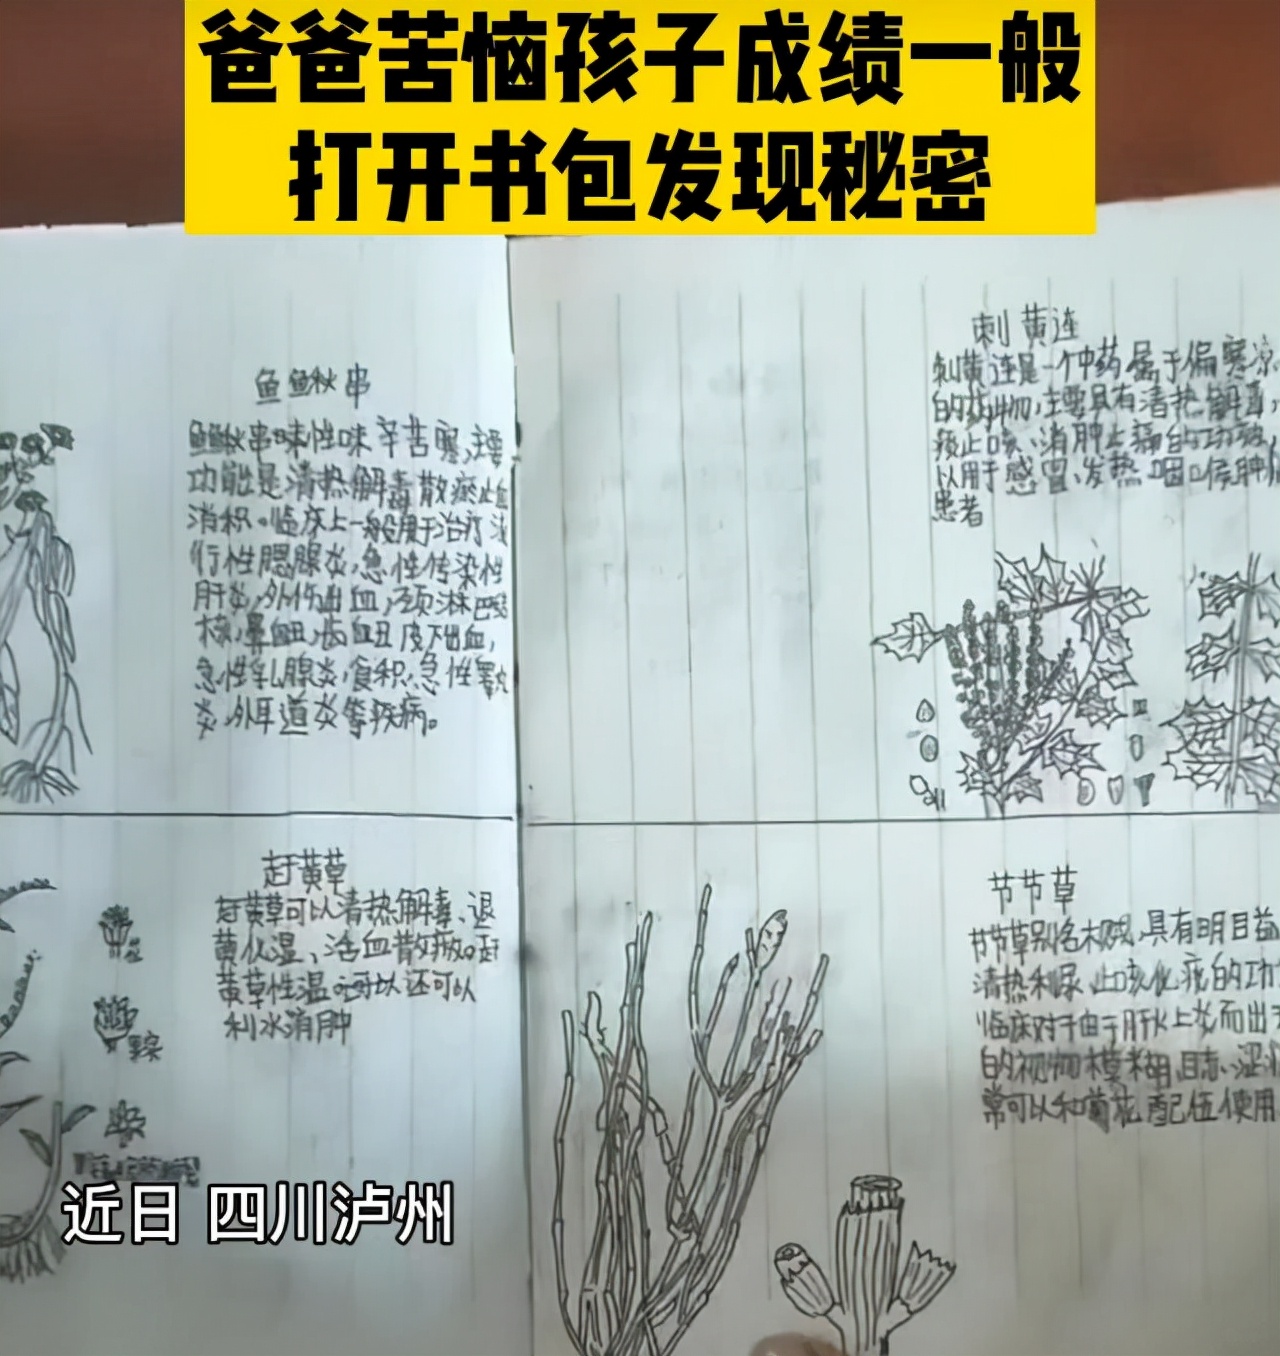 爸爸苦恼孩子成绩一般
打开书包发现秘密
鱼鳅串
鱼鳅串味性味辛苦寒,主要
功能是清热解毒散瘀止血
消积。临床上一般用于治疗流
行性腮腺炎,急性传染性
肝炎,外伤出血,颈淋巴结
核,鼻血,齿血,皮下出血,
急性乳腺炎,食积,急性睾丸
炎,外耳道炎等疾病。
刺黄连
刺黄连是一个中药属于偏寒凉
的药物,主要具有清热解毒,
痰止咳、消肿止痛的功效,
以用于感冒、发热咽喉肿
患者
赶黄草
赶黄草可以清热解毒、退
黄化湿、活血散瘀。赶
黄草性温 可以还可以
利水消肿
果实
节节草
节节草别名木贼,具有明目益
清热利尿、止咳化痰的功
临床对于由于肝火上炎而出
的视物模糊、目赤、涩
常可以和菊花配伍使用
近日 四川泸州